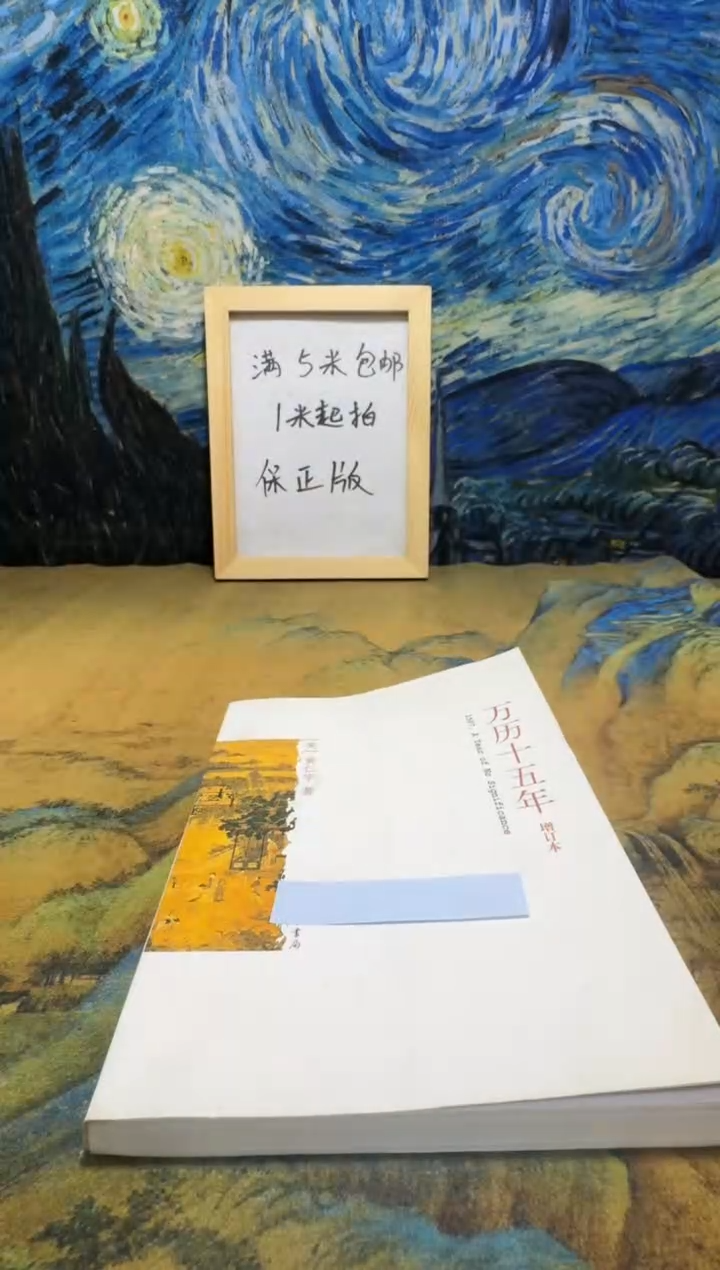 满5米包邮
1米起拍
保正版
万历十五年
增订本
1587, A Year of No Significance
[美] 黄仁宇 著
书局